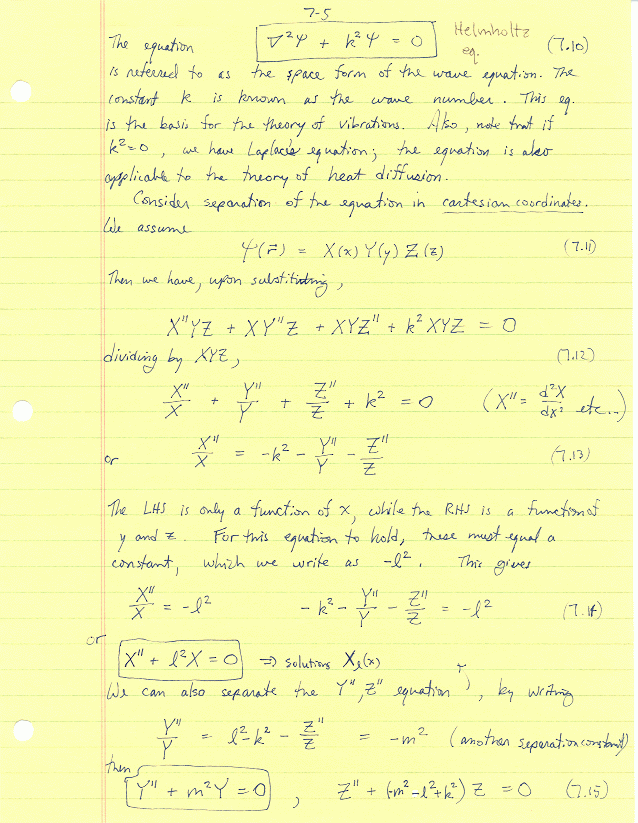 7-5
The equation ∇²Ψ + k²Ψ = 0 Helmholtz eq. (7.10)
is referred to as the space form of the wave equation. The
constant k is known as the wave number. This eq.
is the basis for the theory of vibrations. Also, note that if
k²=0, we have Laplace's equation; the equation is also
applicable to the theory of heat diffusion.
Consider separation of the equation in cartesian coordinates.
We assume
Ψ(r⃗) = X(x) Y(y) Z(z) (7.11)
Then we have, upon substituting,
X''YZ + XY''Z + XYZ'' + k²XYZ = 0
dividing by XYZ, (7.12)
X''/X + Y''/Y + Z''/Z + k² = 0 (X'' = d²X/dx² etc...)
or X''/X = -k² - Y''/Y - Z''/Z (7.13)
The LHS is only a function of x, while the RHS is a function of
y and z. For this equation to hold, these must equal a
constant, which we write as -l². This gives
X''/X = -l² -k² - Y''/Y - Z''/Z = -l² (7.14)
or
X'' + l²X = 0 ⇒ solutions X_l(x)
We can also separate the Y'', Z'' equation, by writing
Y''/Y = l²-k² - Z''/Z = -m² (another separation constant)
then
Y'' + m²Y = 0 , Z'' + (-m²-l²+k²) Z = 0 (7.15)